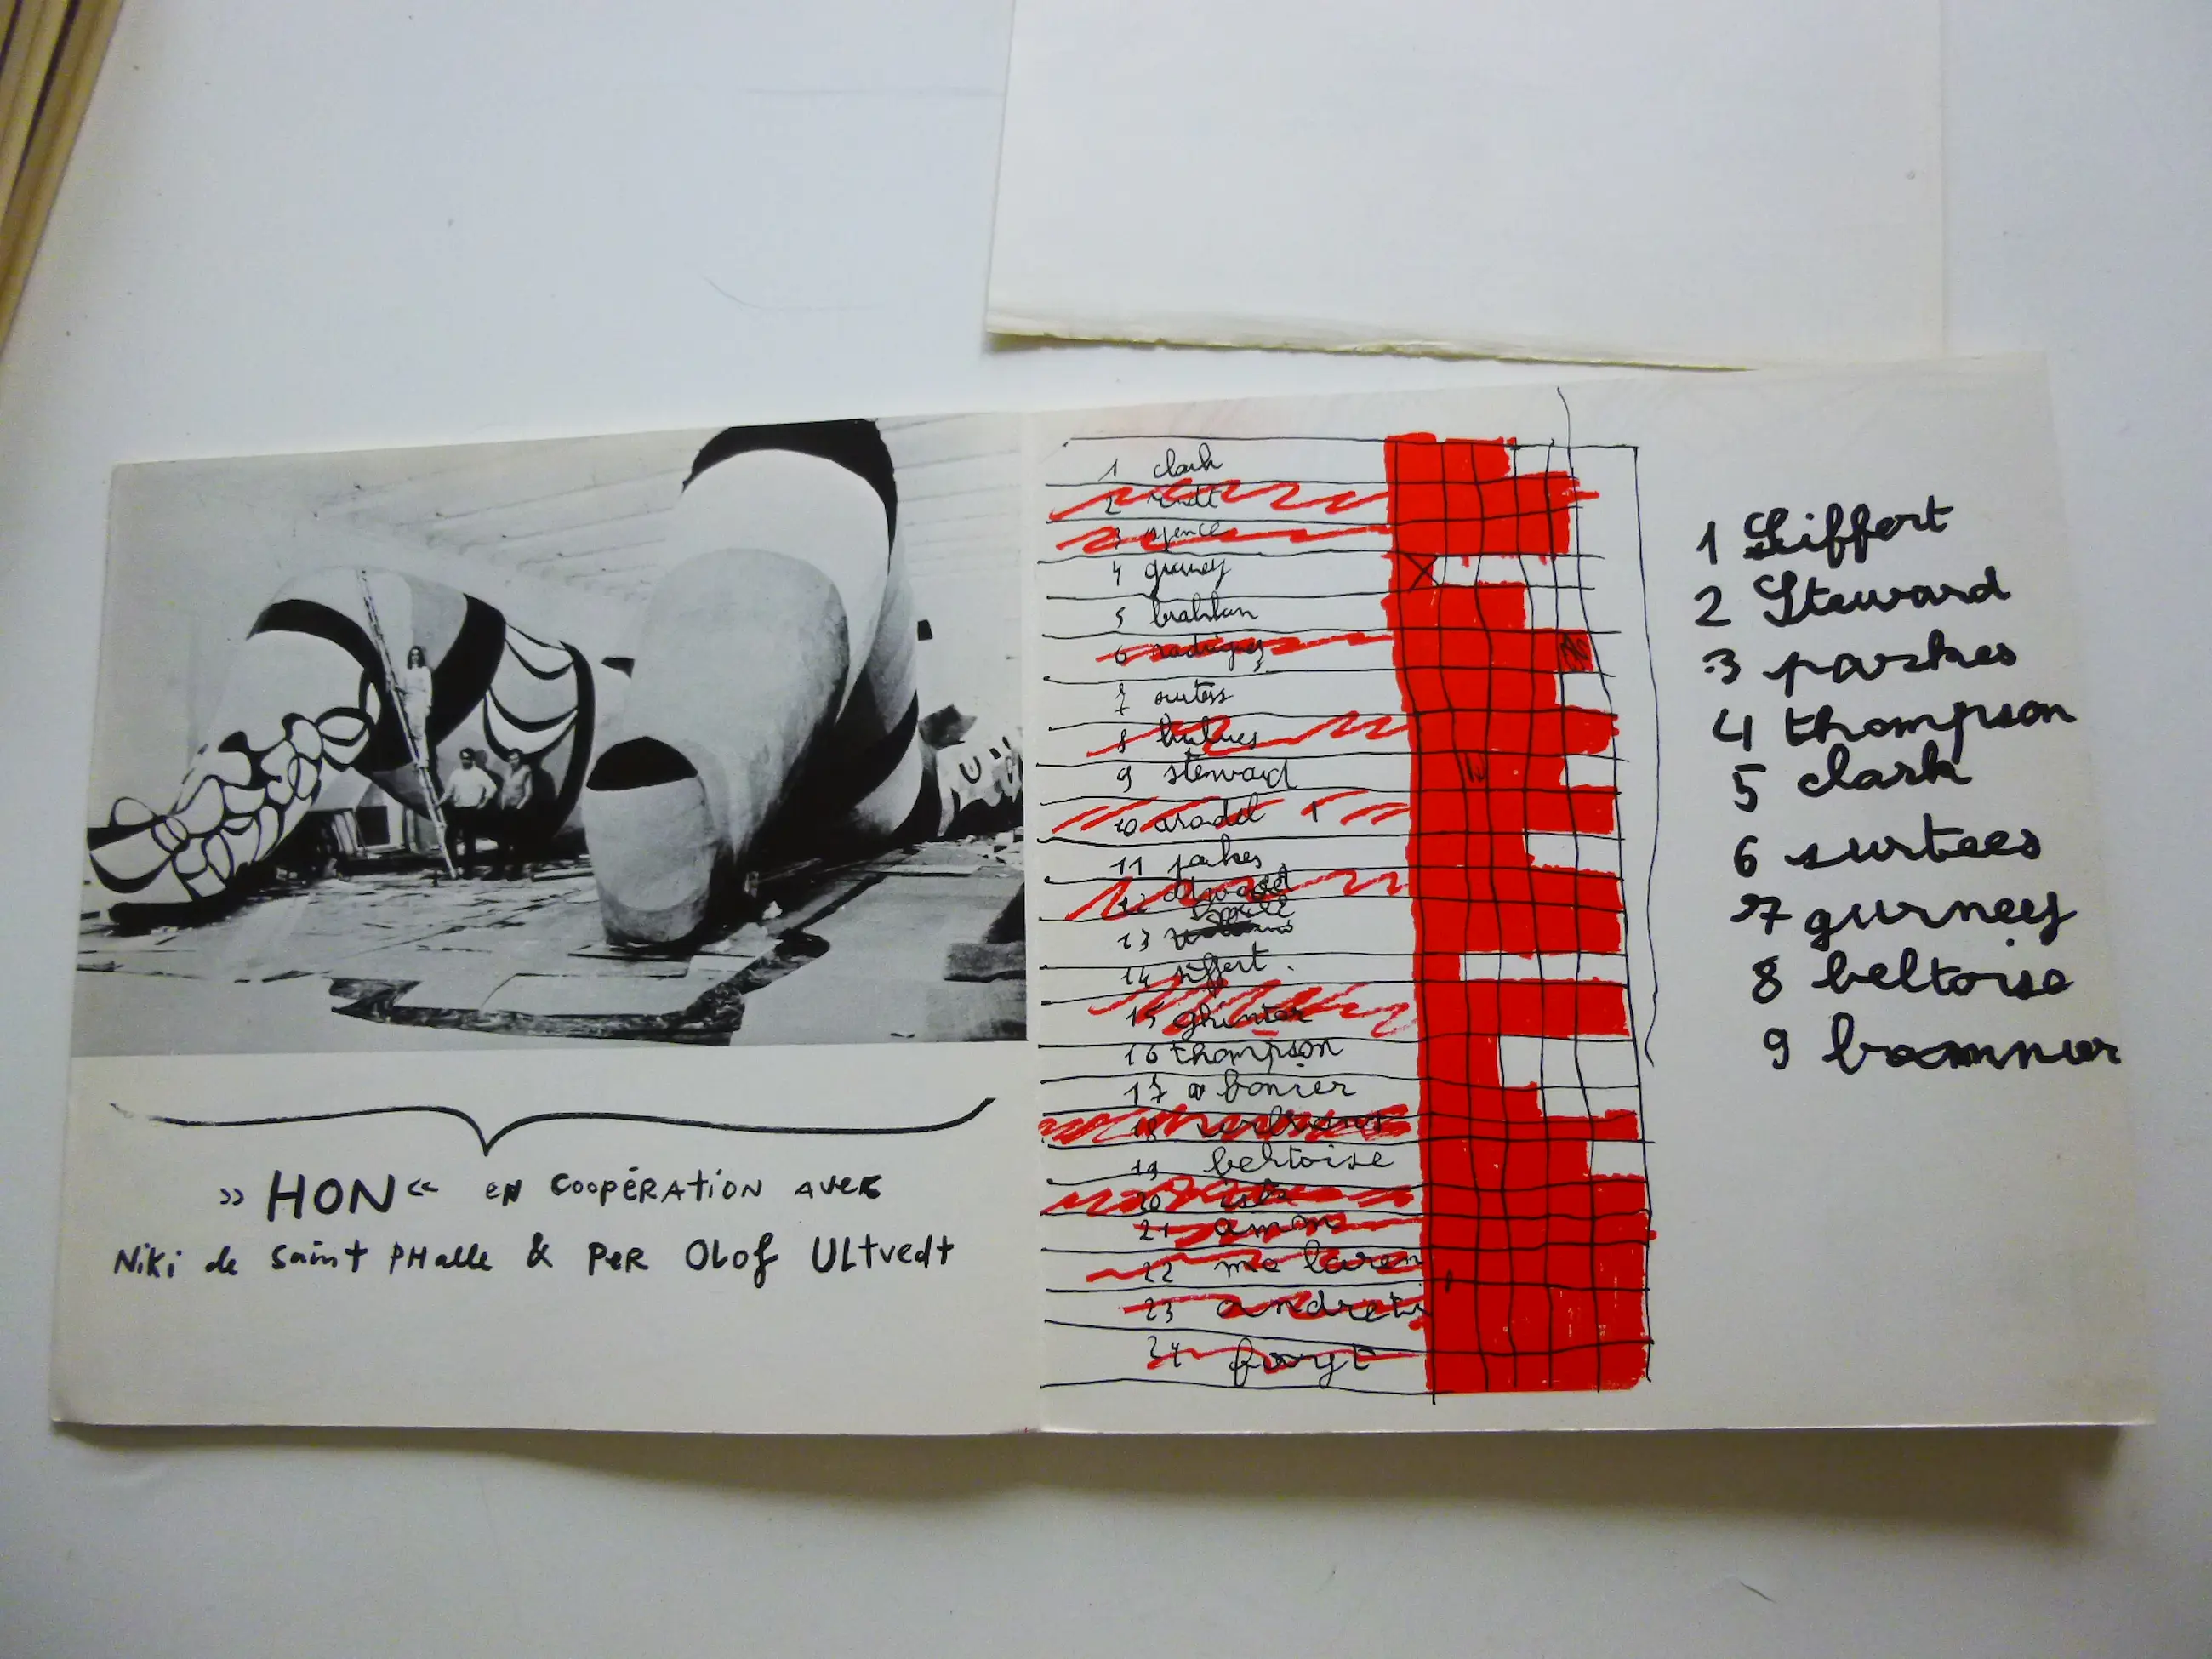 » HON « EN COOPÉRATION AVEC
Niki de Saint PHalle & PER OLOF ULtvedt
1 clark
2
3 spence
4 gurney
5
6 rodriguez
7
8 hulmes
9 steward
10
11
12
13
14 siffert.
15 ghinter
16 thompson
17 bonier
18
19 beltoise
20
21 amon
22 mc laren
23 andreti
24
1 Siffert
2 Steward
3 parkes
4 thompson
5 clark
6 surtees
7 gurney
8 beltoise
9 bonnier